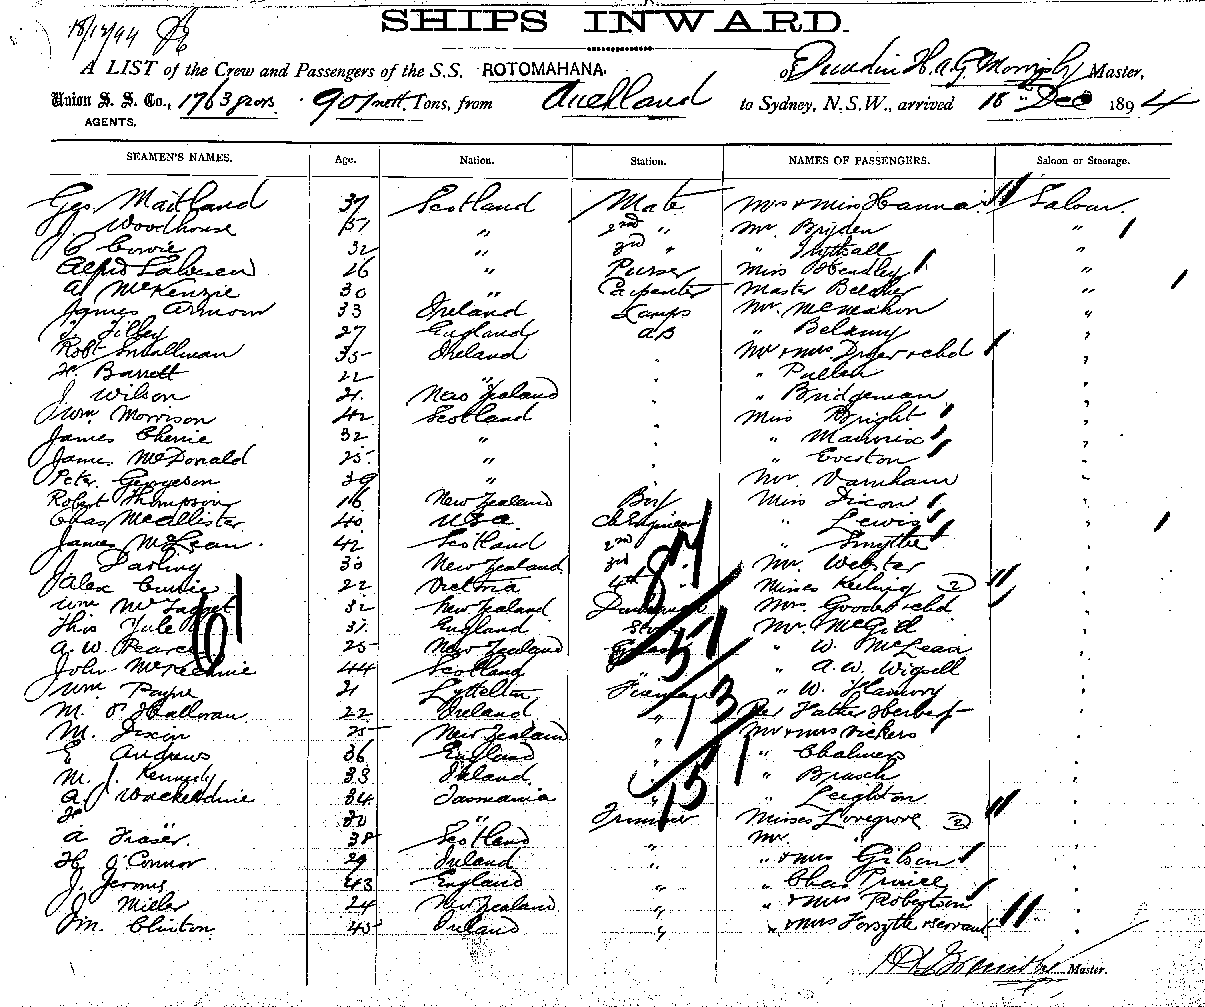 18/12/94
SHIPS INWARD.
A LIST of the Crew and Passengers of the S.S. ROTOMAHANA. of Dunedin H. A. G. Master,
Union S. S. Co., 1763 gross 901 nett Tons, from Auckland to Sydney, N.S.W., arrived 18 Dec 1894
AGENTS.
SEAMEN'S NAMES. Age. Nation. Station. NAMES OF PASSENGERS. Saloon or Steerage.
Geo. Maitland 37 Scotland Mate Mrs & Miss Hanna Saloon.
J Woodhouse 37 " 2nd " Mr. Brijden " 1
C Cowie 32 " 3rd " " "
Alfd 26 " Purser Miss Hendley "
A. McKenzie 30 " Carpenter Master "
James Armour 33 Ireland Lamps Mr. McMahon
" Tilley 27 England AB " Belamy
Robt Smallman 35 Ireland " Mr & Mrs Dyer & chd
H. Barrett 22 " " " Pullen
J. Wilson 21 New Zealand " " Bridgeman
Wm Morrison 42 Scotland " Miss Bright
James Cherrie 32 " " "
James McDonald 25 " " " Everton
Peter Georgeson 39 " " Mr Varnham
Robert Thompson 16 New Zealand Boy Miss Dixon
Chas McAllister 40 USA Ch Engineer " Lewis
James McLean 42 Scotland 2nd " Smythe
J Darling 30 New Zealand 3rd Mr. Webster
Alex Currie 22 Victoria 4th Misses Keeling (2)
Wm 32 New Zealand Mrs. Goode & chd
Thos Yule 37 England Mr. McGill
A. W. Pearce 25 New Zealand " W. McLean
John McKechnie 44 Scotland " A. W. Wigzell
Wm Payne 21 Lyttelton Fireman " W.
M. O'Halloran 22 Ireland " Rev Father Herbert
M. Dixon 25 New Zealand " Mr & Mrs Vickers
E Andrews 36 England " " Chalmers
M. J. Kennedy 33 Ireland " " Brasch
A. J 34 Tasmania " " Leighton
30 " Trimmer Misses Lovegrove (2)
A Fraser. 38 Scotland " Mr. "
H O'Connor 29 Ireland " " & Mrs Gilson
J. Jerome 43 England " " Chas Prince
J. Miller 24 New Zealand " " & Mrs Robertson
Jm. Clinton 45 Ireland " " & Mrs Forsythe & servant
61
87
57
13
15
Master.